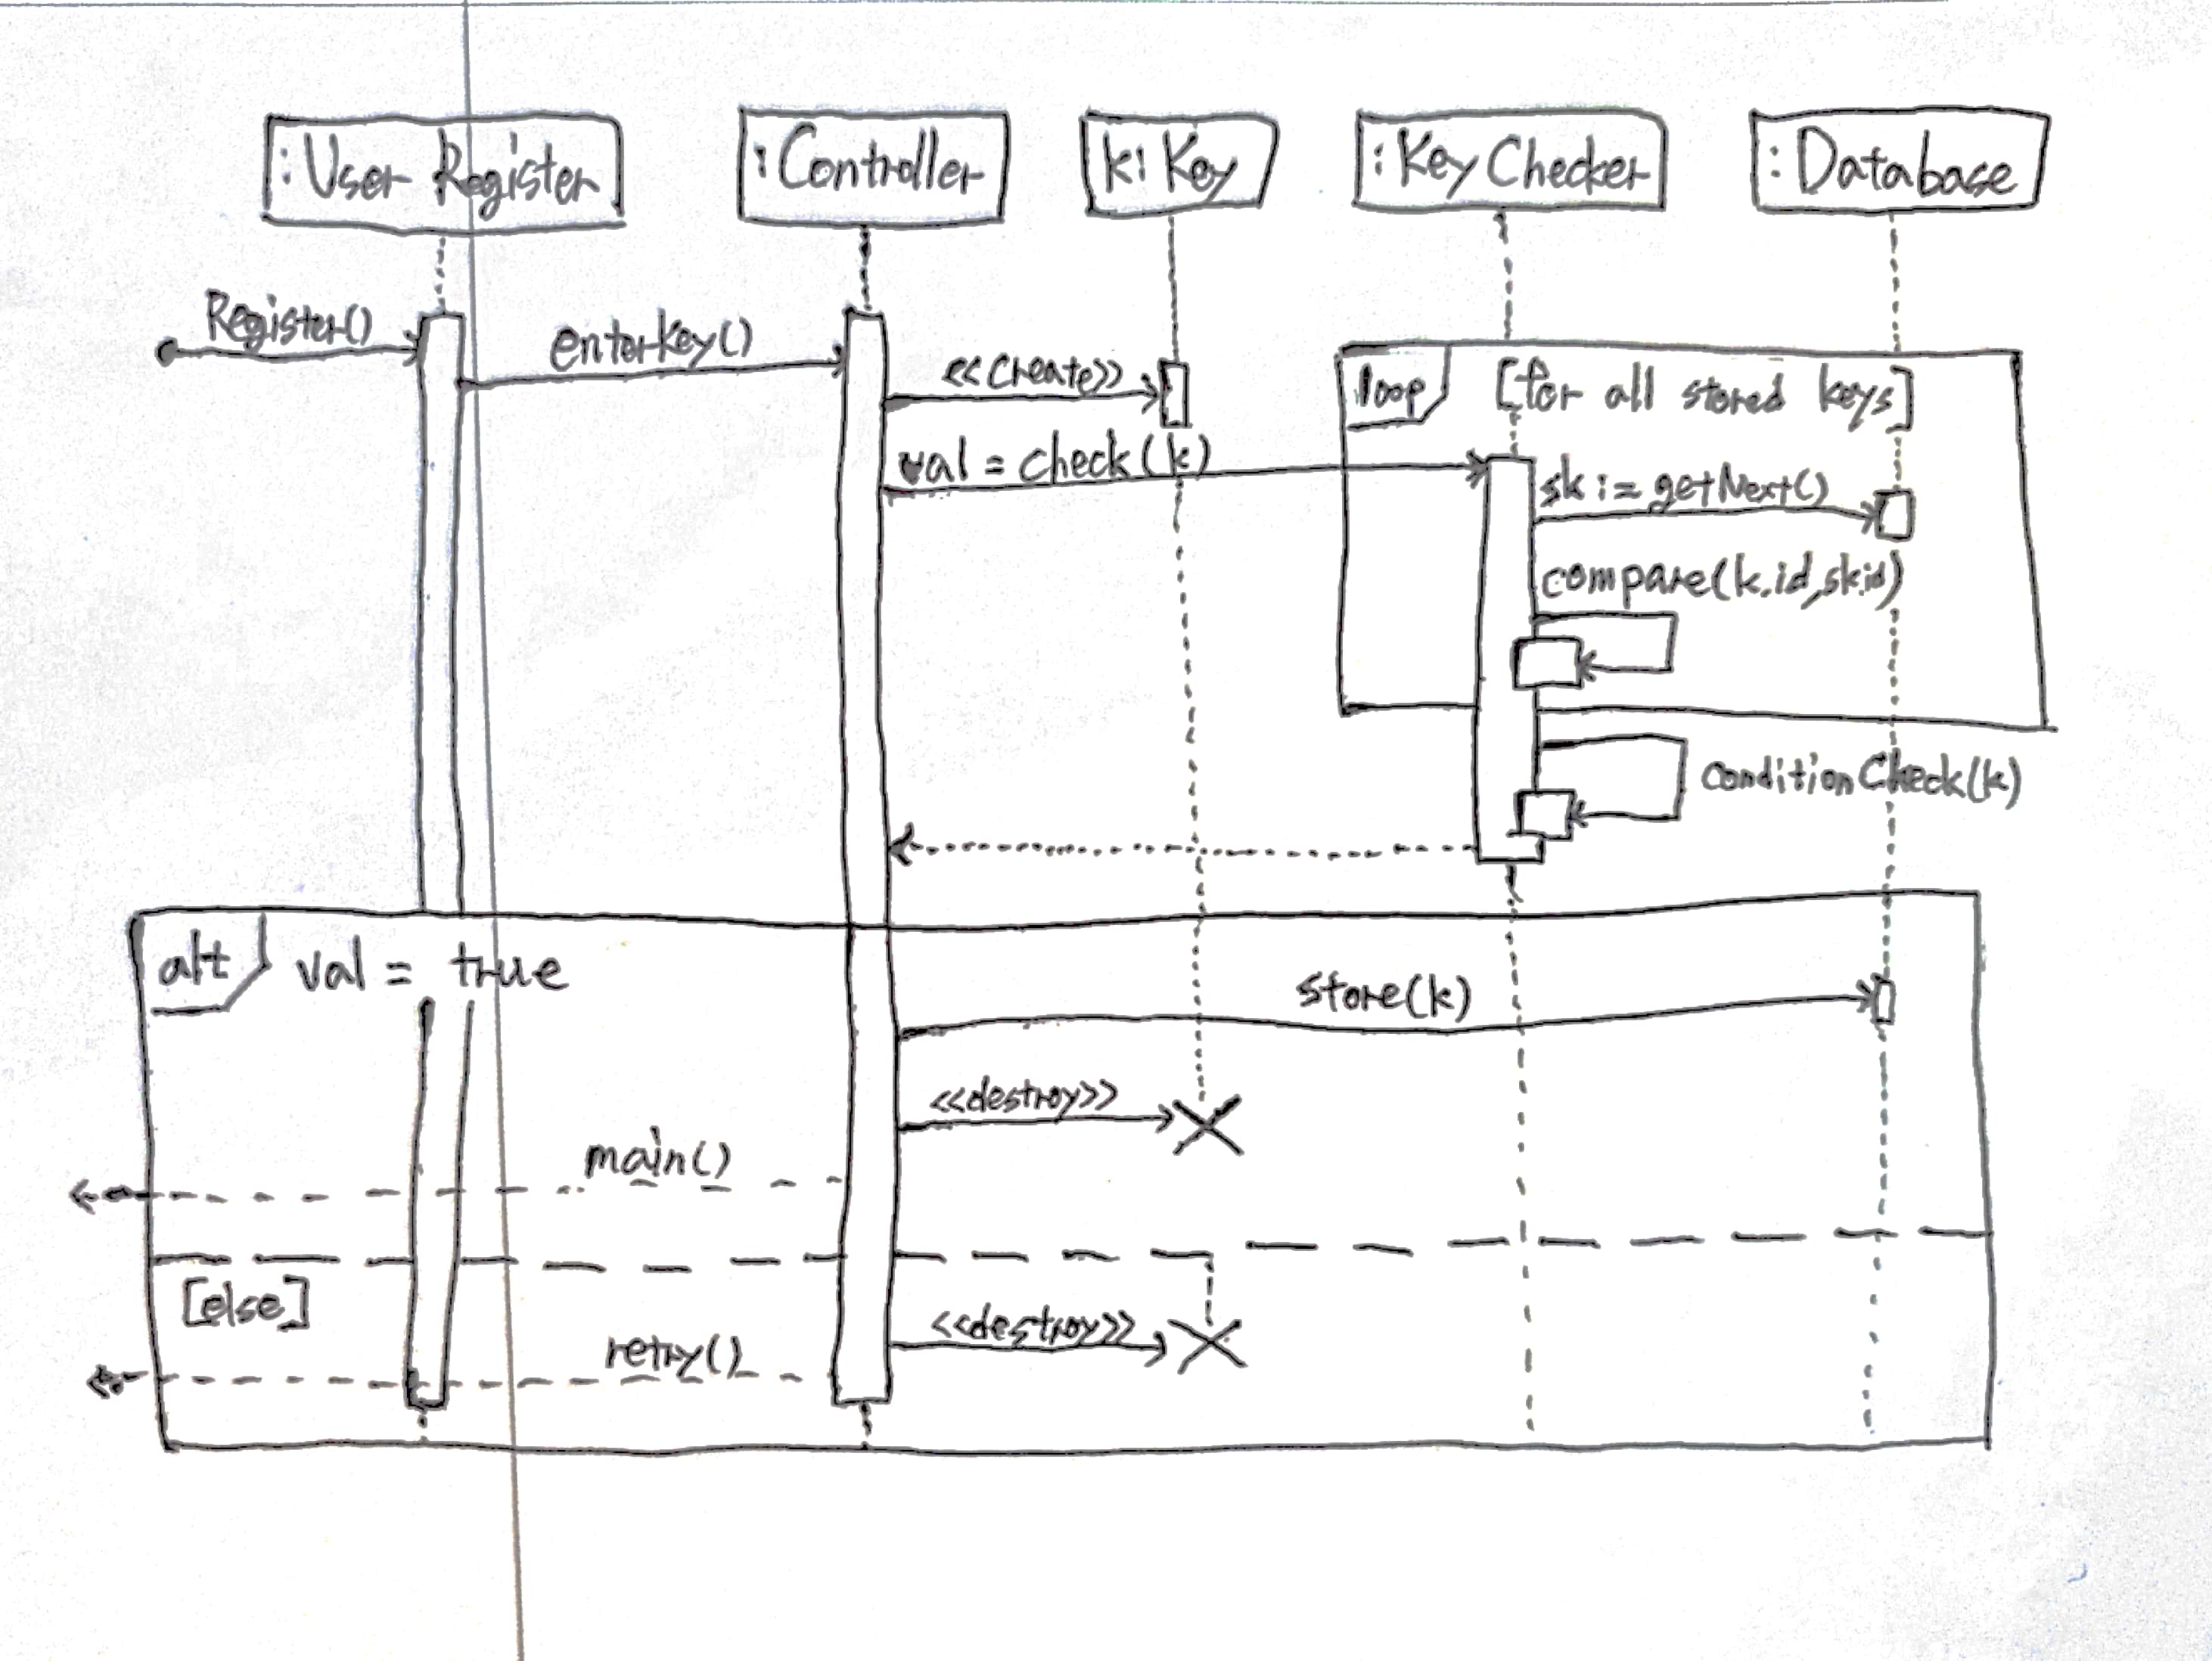 :User Register
:Controller
k:Key
:Key Checker
:Database
Register()
enterkey()
<<Create>>
loop
[for all stored keys]
val = check(k)
sk := getNext()
compare(k.id,sk.id)
conditionCheck(k)
alt
val = true
store(k)
<<destroy>>
main()
[else]
<<destroy>>
retry()